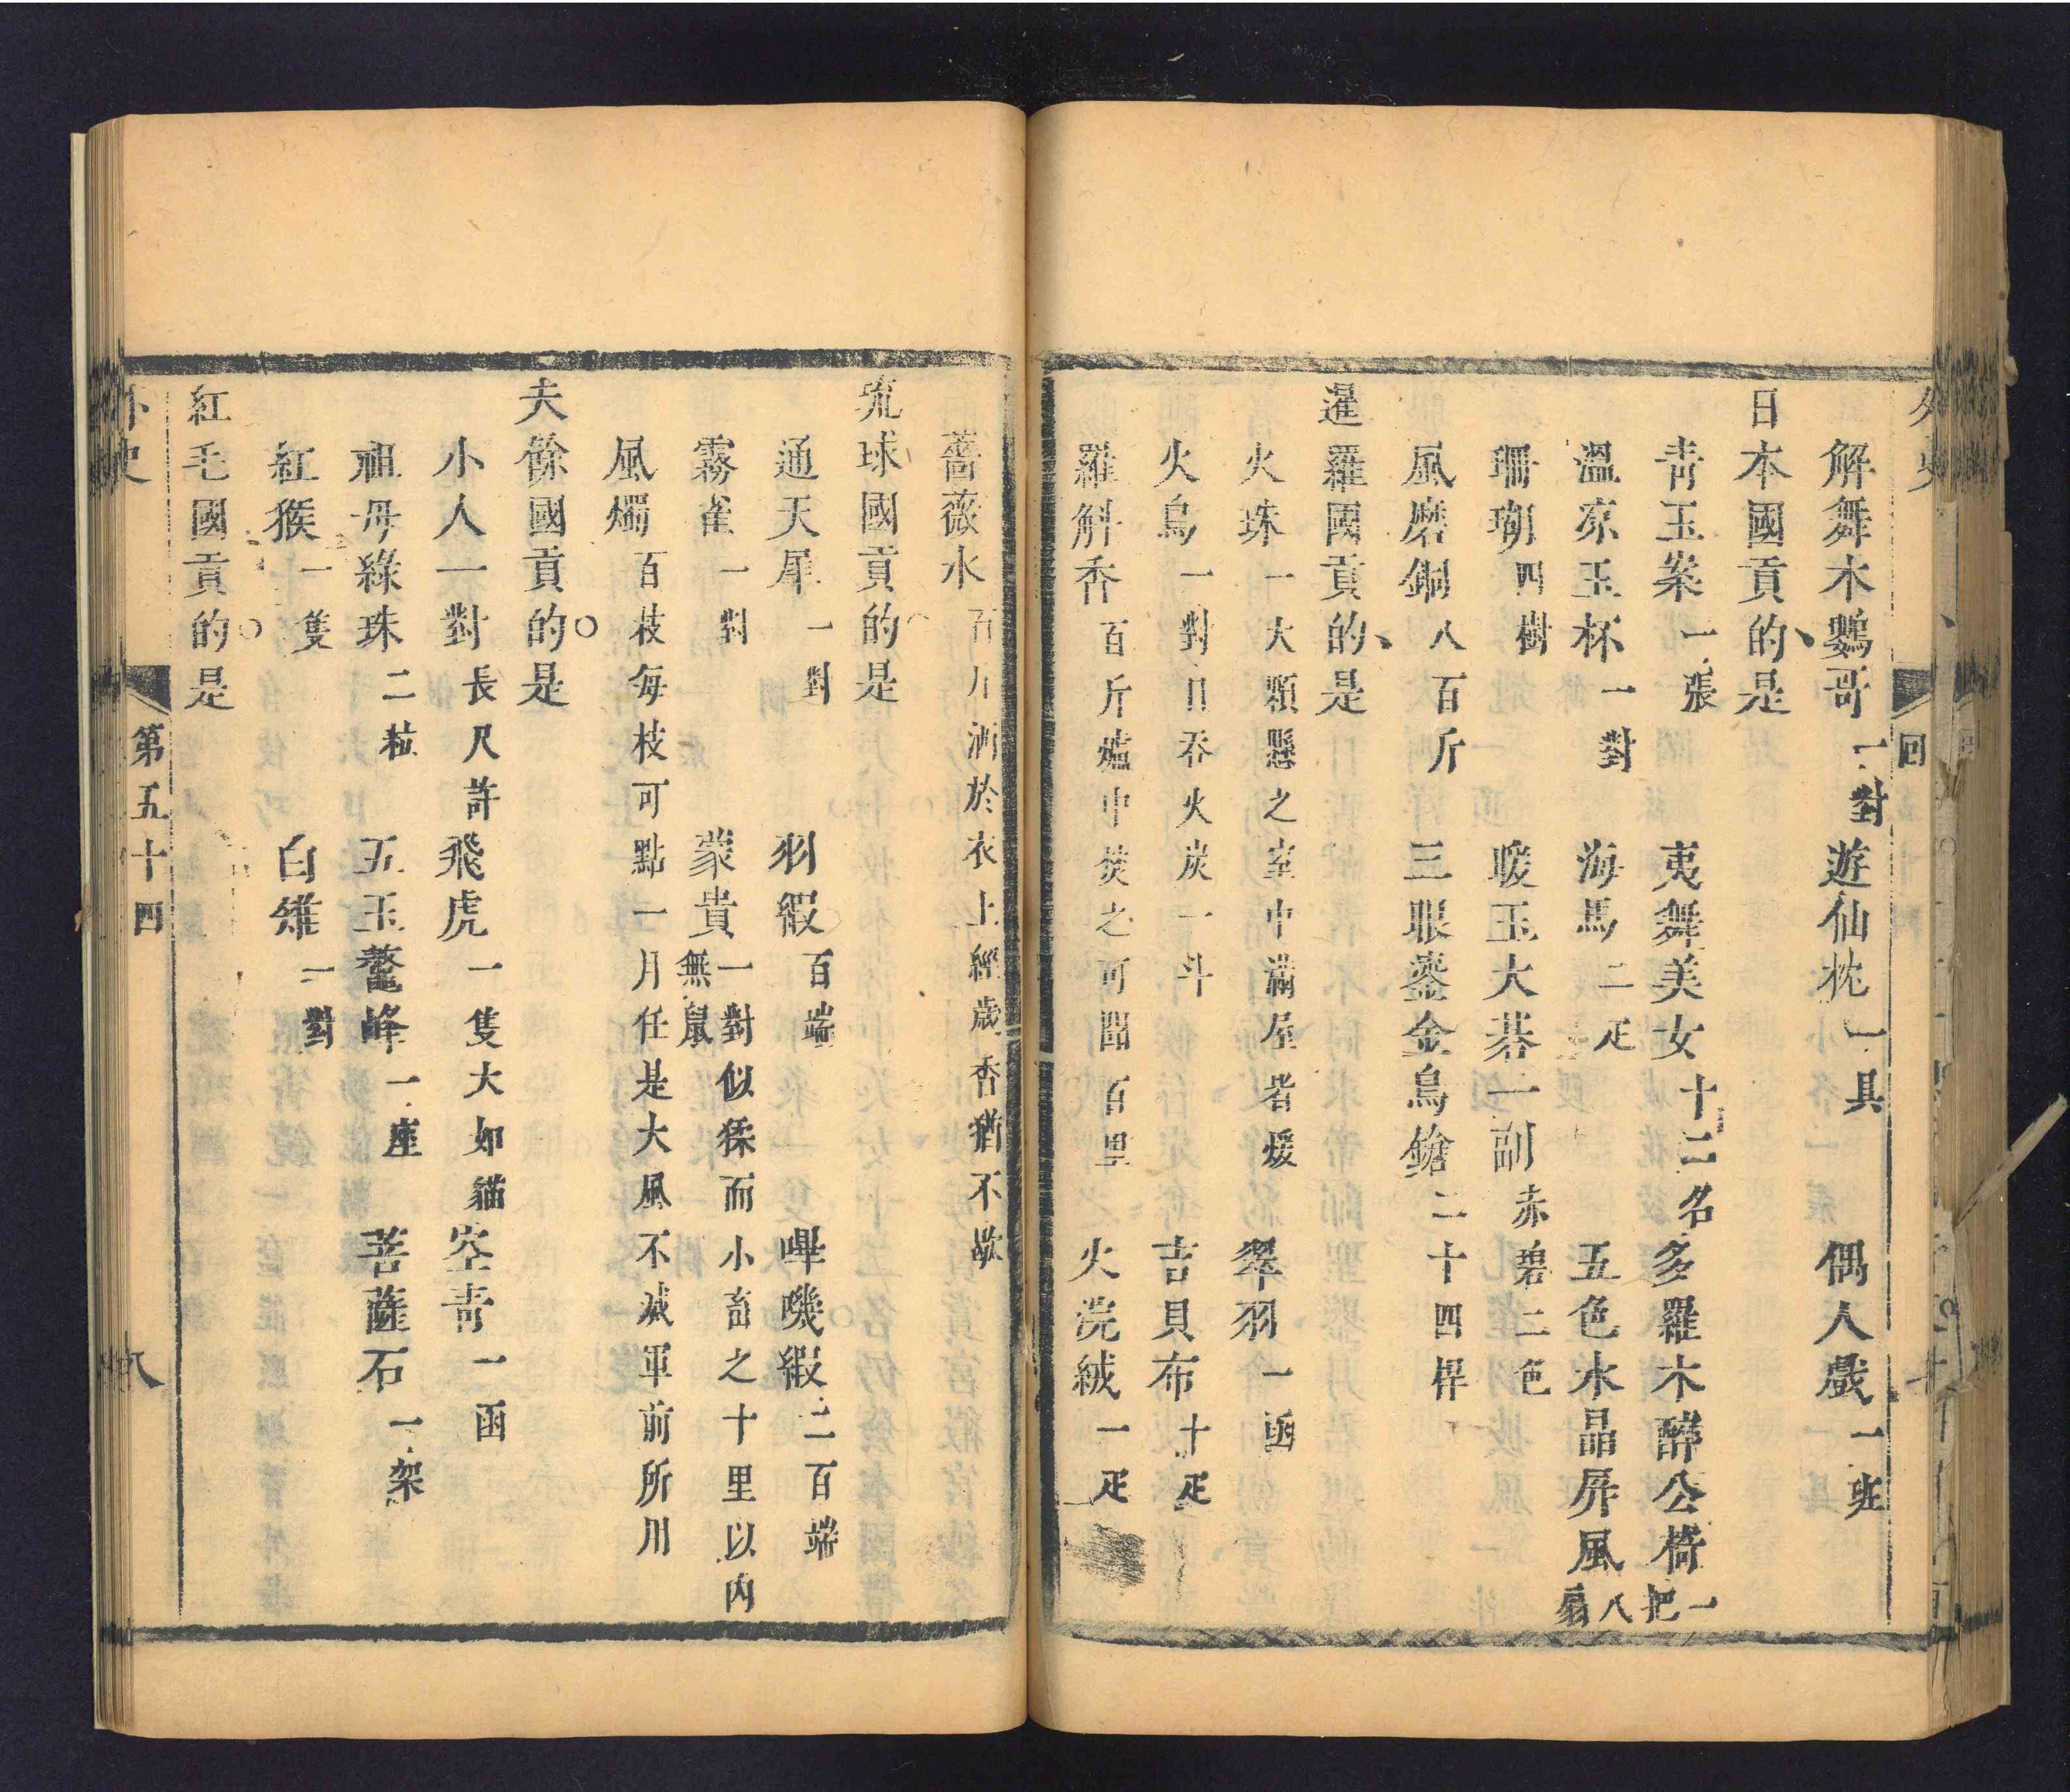 外史
回
解舞木鸚哥一對 遊仙枕一具 偶人戲一班
日本國貢的是
靑玉案一張 夷舞美女十二名 多羅木醉公椅一把
溫凉玉杯一對 海馬二疋 五色水晶屏風八扇
珊瑚四樹 暖玉大碁一副赤碧二色
風磨銅八百斤 三眼鎏金鳥鎗二十四桿
暹羅國貢的是
火珠一大顆懸之室中滿屋皆煖 翠羽一函
火鳥一對日吞火炭一斗 吉貝布十疋
羅斛香百斤爐中焚之可聞百里 火浣絨一疋
薔薇水百斤洒於衣上經歲香猶不歇
琉球國貢的是
通天犀一對 羽緞百端 嗶嘰緞二百端
霧雀一對 蒙貴一對似猱而小畜之十里以內無鼠
風燭百枝每枝可點一月任是大風不滅軍前所用
夫餘國貢的是
小人一對長尺許 飛虎一隻大如貓 空靑一函
祖母綠珠二粒 五玉鰲峰一座 菩薩石一架
紅猴一隻 白雉一對
紅毛國貢的是
外史
第五十四
八